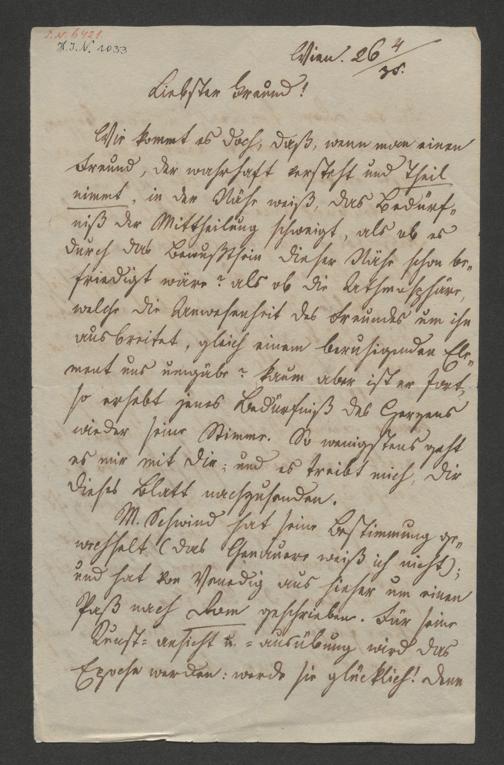 I.N. 6421.
H.I.N. 1033
Wien. 26/4
35.
Liebster Freund!
Wie kommt es doch, daß, wenn man einen
Freund, der wahrhaft versteht und Theil
nimmt, in der Nähe weiß, das Bedürf-
niß der Mittheilung schweigt, als ob es
durch das Bewußtsein dieser Nähe schon be-
friedigt wäre? als ob die Athmosphäre,
welche die Anwesenheit des Freundes um ihn
ausbreitet, gleich einem beruhigenden Ele-
ment uns umgäbe? kaum aber ist er fort,
so erhebt jenes Bedürfniß des Herzens
wieder seine Stimme. So wenigstens geht
es mir mit Dir; und es treibt mich, Dir
dieses Blatt nachzusenden.
M. Schwind hat seine Bestimmung ge-
wechselt (das Genauere weiß ich nicht);
und hat von Venedig aus hieher um einen
Paß nach Rom geschrieben. Für seine
Kunst-ansicht u. -ausübung wird das
Epoche werden: werde sie glücklich! Denn